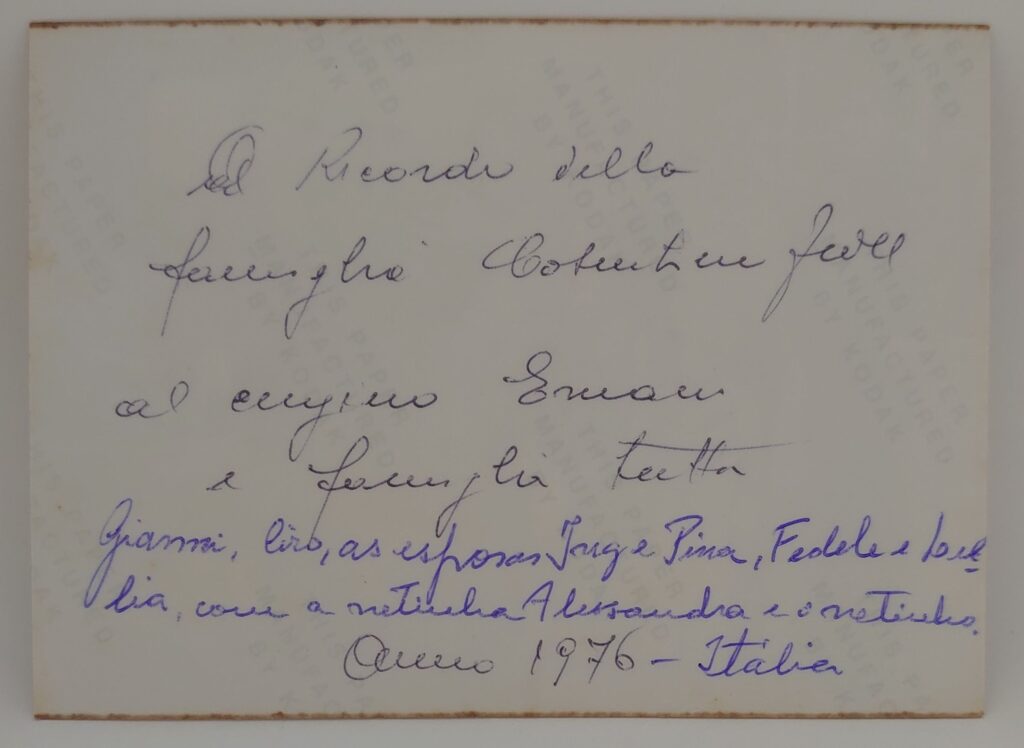 Ad Ricordo della
famiglia Cosentini
al cugino Ernani
e famiglia tutta
Gianni, Ciro, as esposas Ing e Pina, Fedele e
com a netinha Alessandra e o netinho.
Anno 1976 - Itália
THIS PAPER
MANUFACTURED
BY KODAK